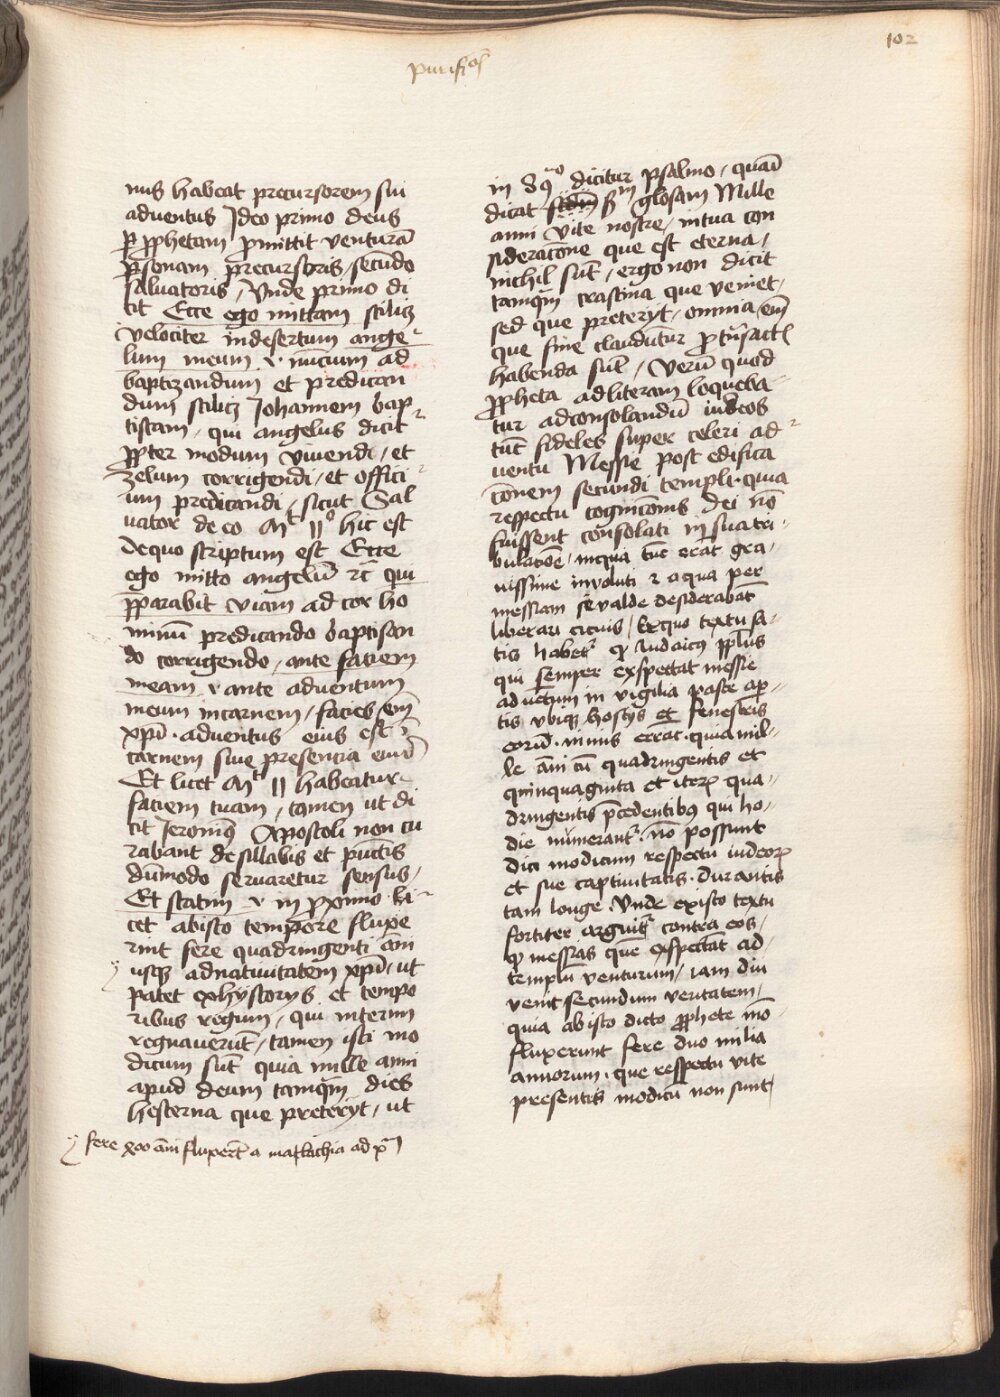 102
purificōs
nus habeat precursorem sui
aduentus Ideo primo deus
ꝑ ꝓphetam ꝓmittit venturā
ꝑsonam precursoris / secūdo
saluatoris / Unde primo di
cit Ecce ego mittam scilicꝫ
velociter in desertum ange
lum meum .i. nūcium ad
baptizandum et predican
dum scilicꝫ Johannem bap
tistam / qui angelus dicit᷑
ꝓpter modum viuendi / et
zelum corrigendi / et offici
um predicandi / sicut Sal
uator de eo Mᵗ 11º hic est
de quo scriptum est Ecce
ego mitto angelū ⁊c̄ qui
p̄parabit viam ad cor ho
minū predicando baptisan
do corrigendo / ante faciem
meam .i. ante aduentum
meum in carnem / facies em̄
xp̄i . aduentus eius est ī
carnem siue presencia eius
Et licet Mᵗ 11 habeatur
faciem tuam / tamen ut di
cit Jeronimꝰ Apostoli non cu
rabant de sillabis et pūctis
dūmodo seruaretur sensus /
Et statim .i. in ꝓximo li
cet ab isto tempore fluxe
rint fere quadringenti ānī
usqꝫ ad natiuitatem xp̄i / ut
patet ex hystorys et tempo
ribus regum / qui interim
regnauerūt / tamen isti mo
dicum sūt quia mille anni
apud deum tamqᷓm dies
hesterna que preteryt / ut
fere xoo ānī fluxerūt a malachia ad xᷓm
in 89º dicitur psalmo / quā
dicat sᵐ glosam Mille
anni vite nostre / in tua con
sideracōne que est eterna /
nichil sūt / ergo non dicit
tamqᷓm crastina que veniet /
sed que preteryt / omnia em̄
que fine claudūtur ꝑ trāsact᷑
habenda sūt / Verū quod
ꝓpheta ad literam loqueba
tur ad consolandū iudeos
tūc fideles super celeri ad
uentu Messie post edifica
cōnem secundi templi . quia
respectu cognicōnis dei nō
fuissent consolati in sua tri
bulacōe / in qua tūc erāt gra
uissime inuoluti ⁊ a qua per
messiam se valde desiderabāt
liberari cicius / Ex quo textu sa
tis habet᷑ ꝙ Judaicus ꝓplus
qui semper exspectat messie
aduētum in vigilia pasce ap
tis vbiqꝫ hostys et fenestris
eorū . nimis errat . quia mil
le ānī cū quadringentis et
quinquaginta et iterꝝ qua
dringentis p̄cedentibꝰ qui ho
die nūerant᷑ . nō possunt
dici modicum respectu iudeoꝝ
et sue captiuitatis . durantis
tam longe . Unde ex isto textu
fortiter arguit᷑ contra eos /
ꝙ messias quē exspectāt ad
templum venturum / iam diu
venit secundum veritatem /
quia ab isto dicto ꝓphete mō
fluxerunt fere duo milia
annorum . que respectu vite
presentis modicū non sunt /